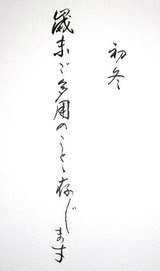 初冬
歳末ご多用のことゝ存じます